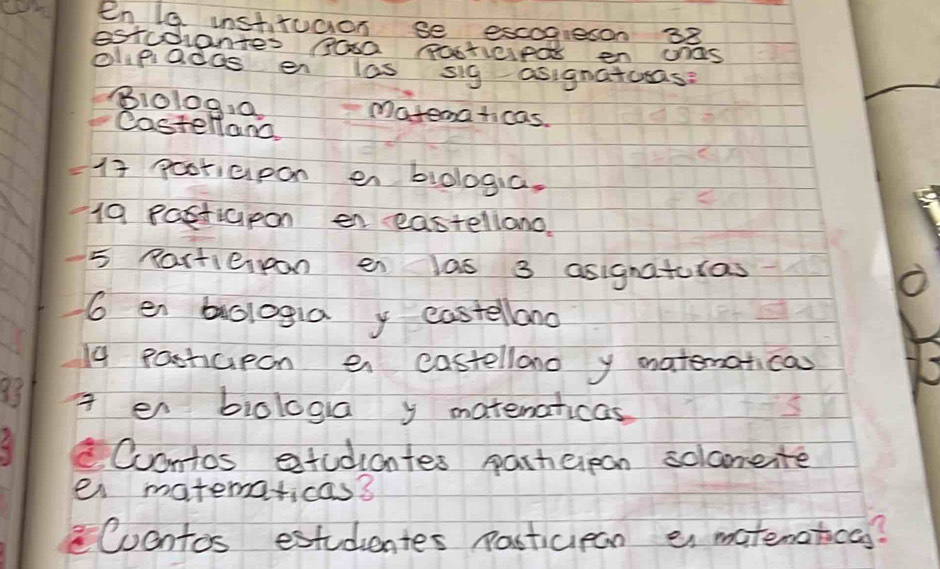 en la institucion se escogieron 38
estudiantes para participar en unas
olipiadas en las sig asignaturas:
- Biologia. - Matematicas.
- Castellano.
- 17 participan en biologia.
- 19 participan en castellano.
- 5 Participan en las 3 asignaturas
- 6 en biologia y castellano
- 19 participan en castellano y matematicas
7 en biologia y matematicas
¿Cuantos estudiantes participan solamente
en matematicas?
¿Cuantos estudientes participan en matematicas?